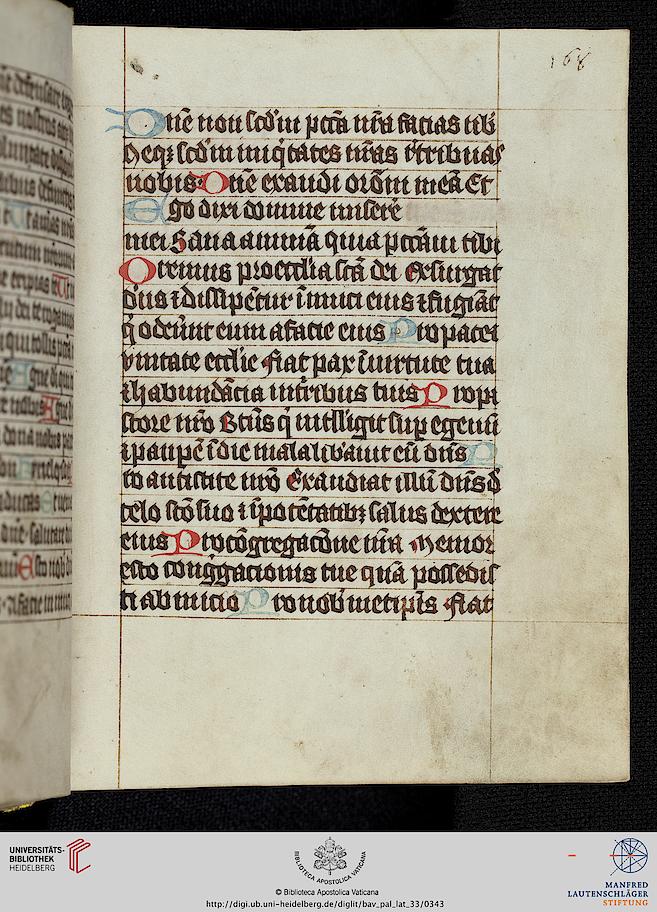 168
Dñe non scd̄m pctā nr̄a facias nob̄
Neqꝫ scd̄m iniq̄tates nr̄as r̄tribuas
nobis Dñe exaudi orōm meā Et
Ego dixi domine miserē
mei Sana animā quia pctāui tibi
Oremus pro ecclīa sctā dei Exsurgat
dūs ⁊ dissipētur īmici eius ⁊ fugiāt
q̄ oderūnt eum a facie eius Pro pace ⁊
vnitate ecclīe Fiat pax ī virtute tua
⁊ habundācia in tr̄ribus tuis Pro p
store nr̄o Btūs q̄ intlligit sup̄ egenū
⁊ paupē ī die mala lib̄auit eū dn̄s P
ro antistite nr̄o Exaudiat illū dn̄s d̄
celo scō suo ⁊ ī potētatibꝫ salus dextere
eius Pro cōgregacōne nr̄a Memor
esto cong̃gacionis tue quā possedis
ti ab inicio Pro nob̄ metip̄is Fiat
UNIVERSITÄTS-
BIBLIOTHEK
HEIDELBERG
BIBLIOTECA APOSTOLICA VATICANA
© Biblioteca Apostolica Vaticana
http://digi.ub.uni-heidelberg.de/diglit/bav_pal_lat_33/0343
MANFRED
LAUTENSCHLÄGER
STIFTUNG